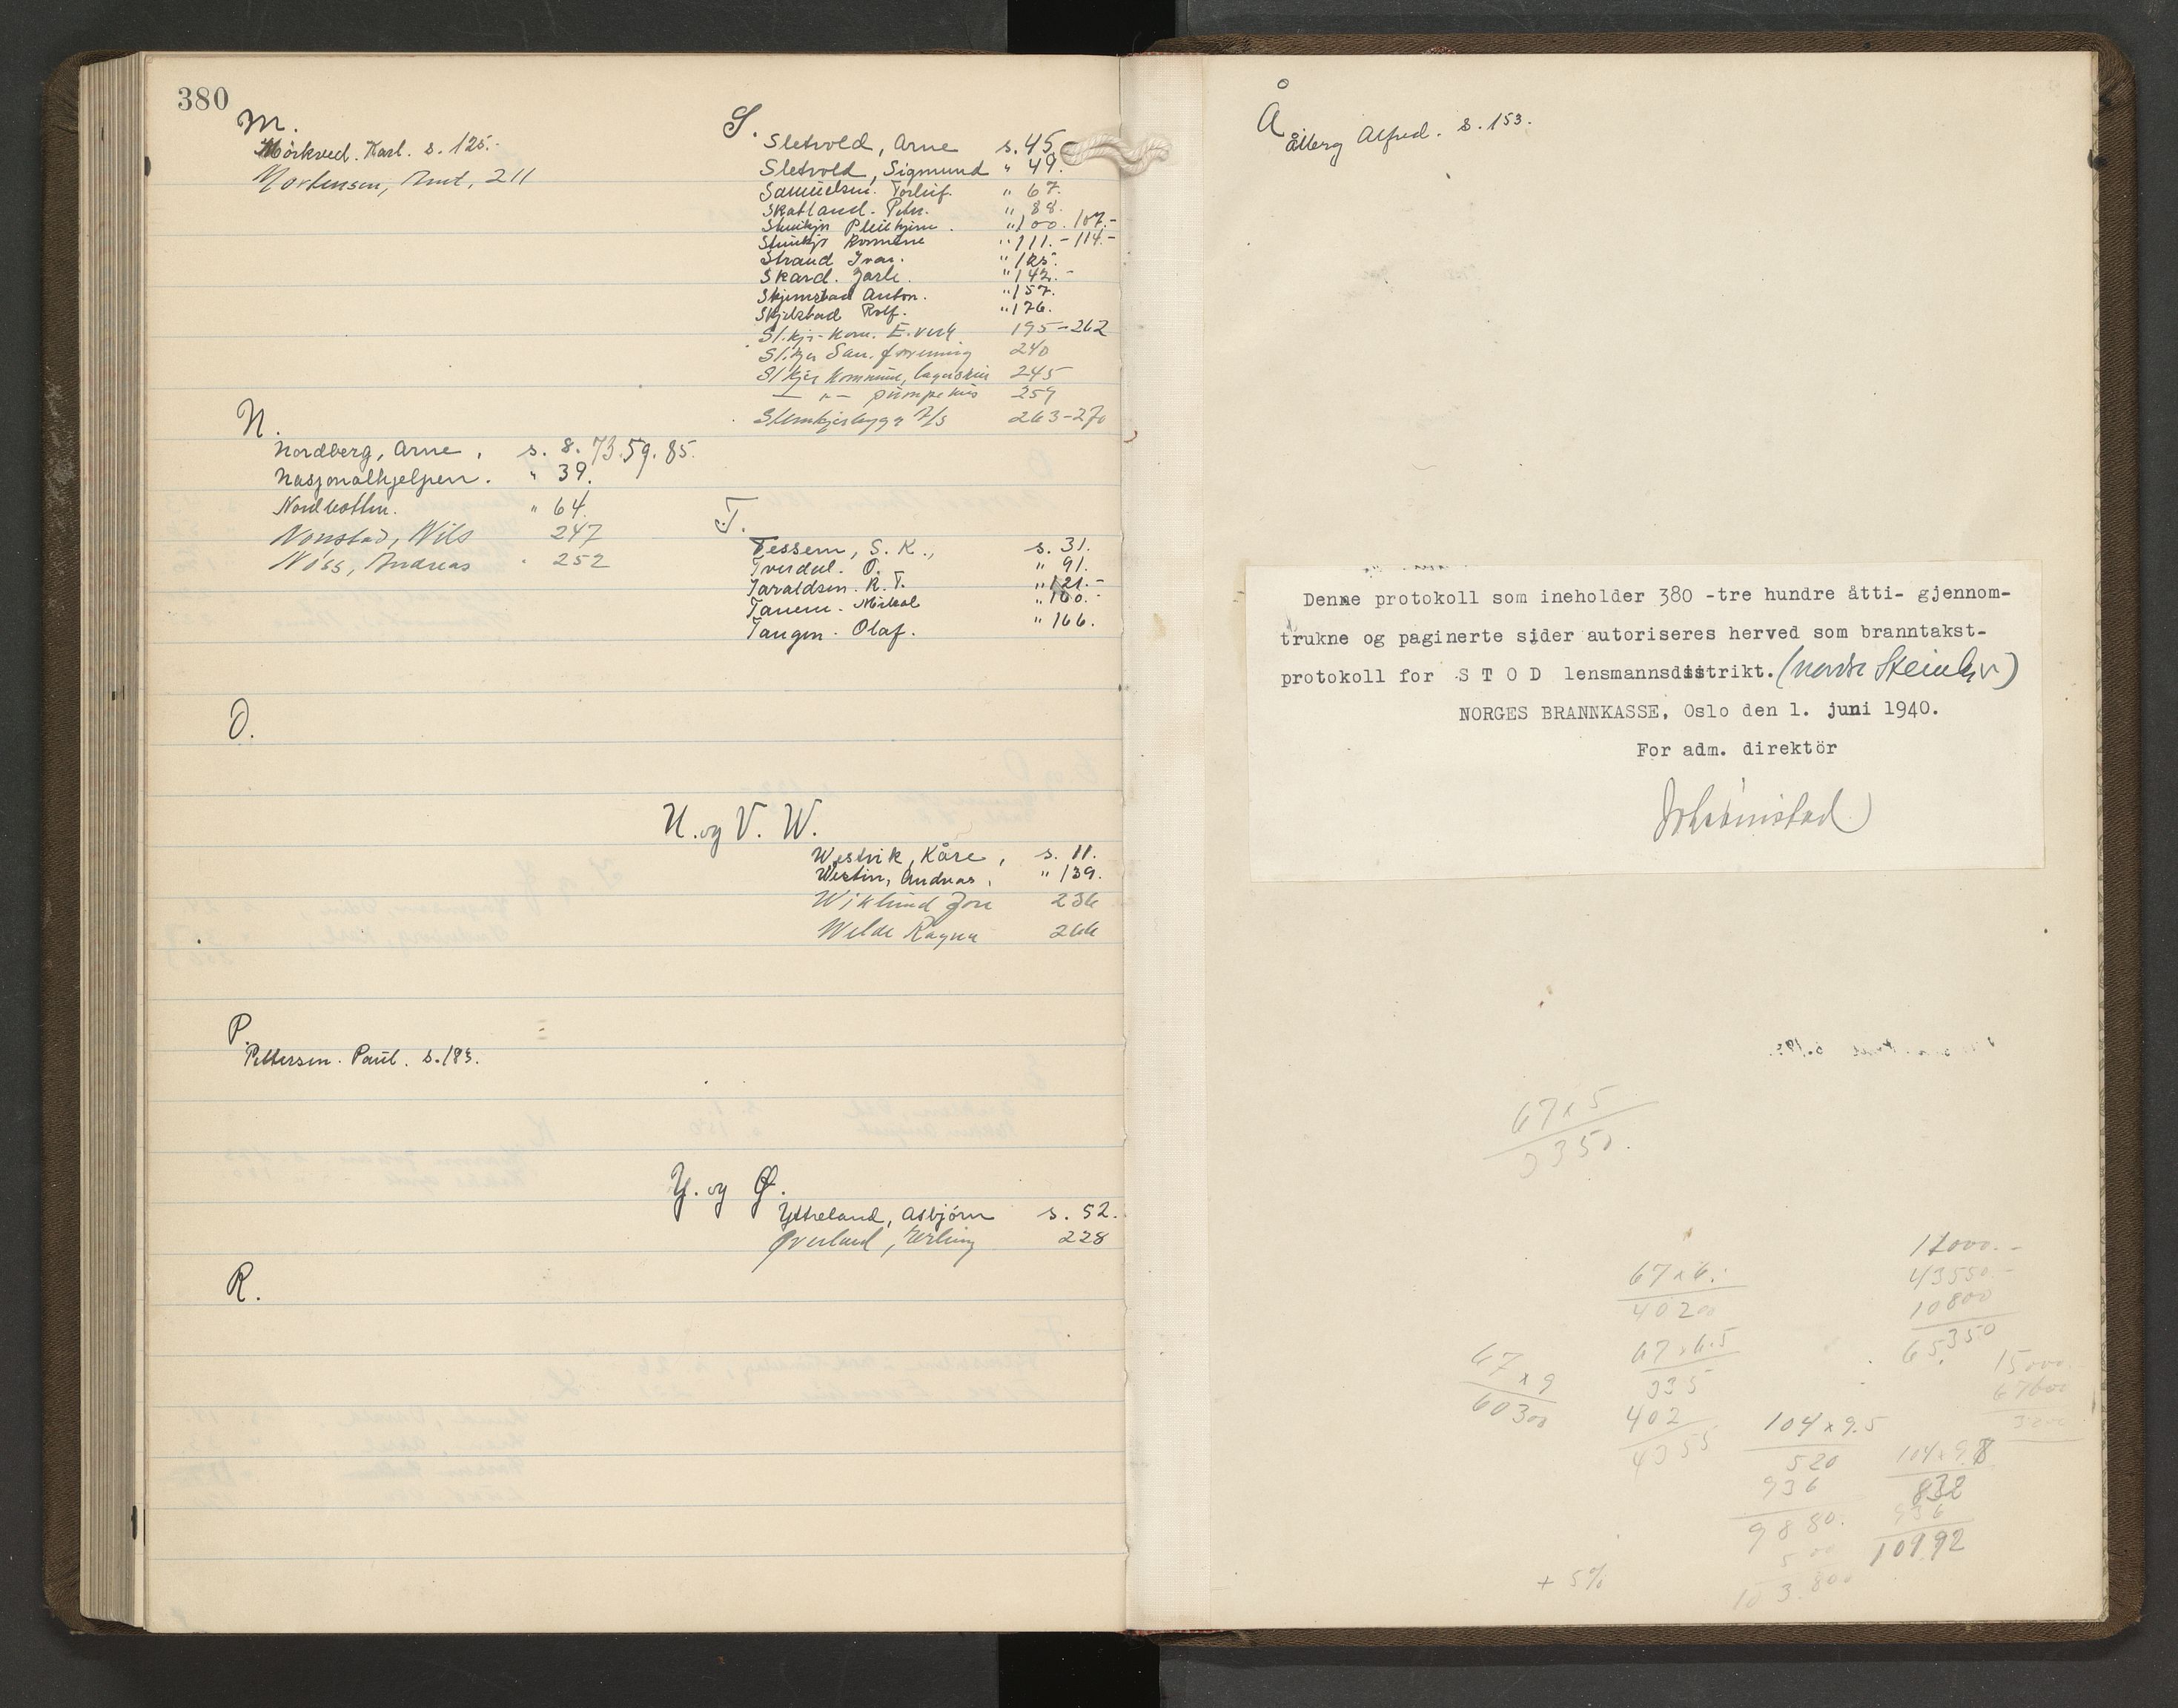 380
M.
Mörkved. Karl. s. 125.-
Mortensen, Arnt, 211
N.
Nordberg, Arne, s. 8. 73. 59. 85.
Nasjonalhjelpen. " 39.
Nordbotten. " 64.
Nonstad, Nils 247
Nöss, Andreas 252
O.
P.
Pettersen. Paul. s. 183.
R.
S.
Sletvold, Arne s. 45.
Sletvold, Sigmund " 49.
Samuelsen. Torleif. " 67.
Skatland. Peter. " 88.
Steinkjer Pleiehjem. " 100. 107.-
Steinkjer Kommune " 111.-114.-
Strand Ivar. " 125.
Skard. Jarle. " 142.-
Skjemstad Anton. " 157.
Skjelstad Rolf. " 176.
St.kjer Kom. E.verk 195-262
St.kjer San. forening 240
St.kjer Kommune, lagerskur 245
— " — pumpehus 259
Steinkjerbygg A/S 263-270
T.
Tessem, S. K., s. 31.
Tverdal. O. " 91.
Taraldsen. R. T. " 121.-
Tanem. Mikal " 160.-
Tangen. Olaf. " 166.
U. og V. W.
Westvik, Kåre, s. 11.
Westin, Andreas, " 139.
Wiklund Jon 236
Welde Ragna 266
Y. og Ø.
Ytreland, Asbjörn s. 52.
Øverland, Erling 228
Å
Ålberg Alfred. s. 153.
Denne protokoll som ineholder 380 -tre hundre åtti- gjennom-
trukne og paginerte sider autoriseres herved som branntakst-
protokoll for S T O D lensmannsdistrikt. (nordre Steinkjer)
NORGES BRANNKASSE, Oslo den 1. juni 1940.
For adm. direktör
67 x 5
3350.
67 x 6.
40200
67 x 6.5
335
402
4355
67 x 9
60300
43550.-
10800
65350
15000
67600
104 x 9.5
520
936
9880.
500
103.800
104 x 9.8
832
936
10192
+ 5%